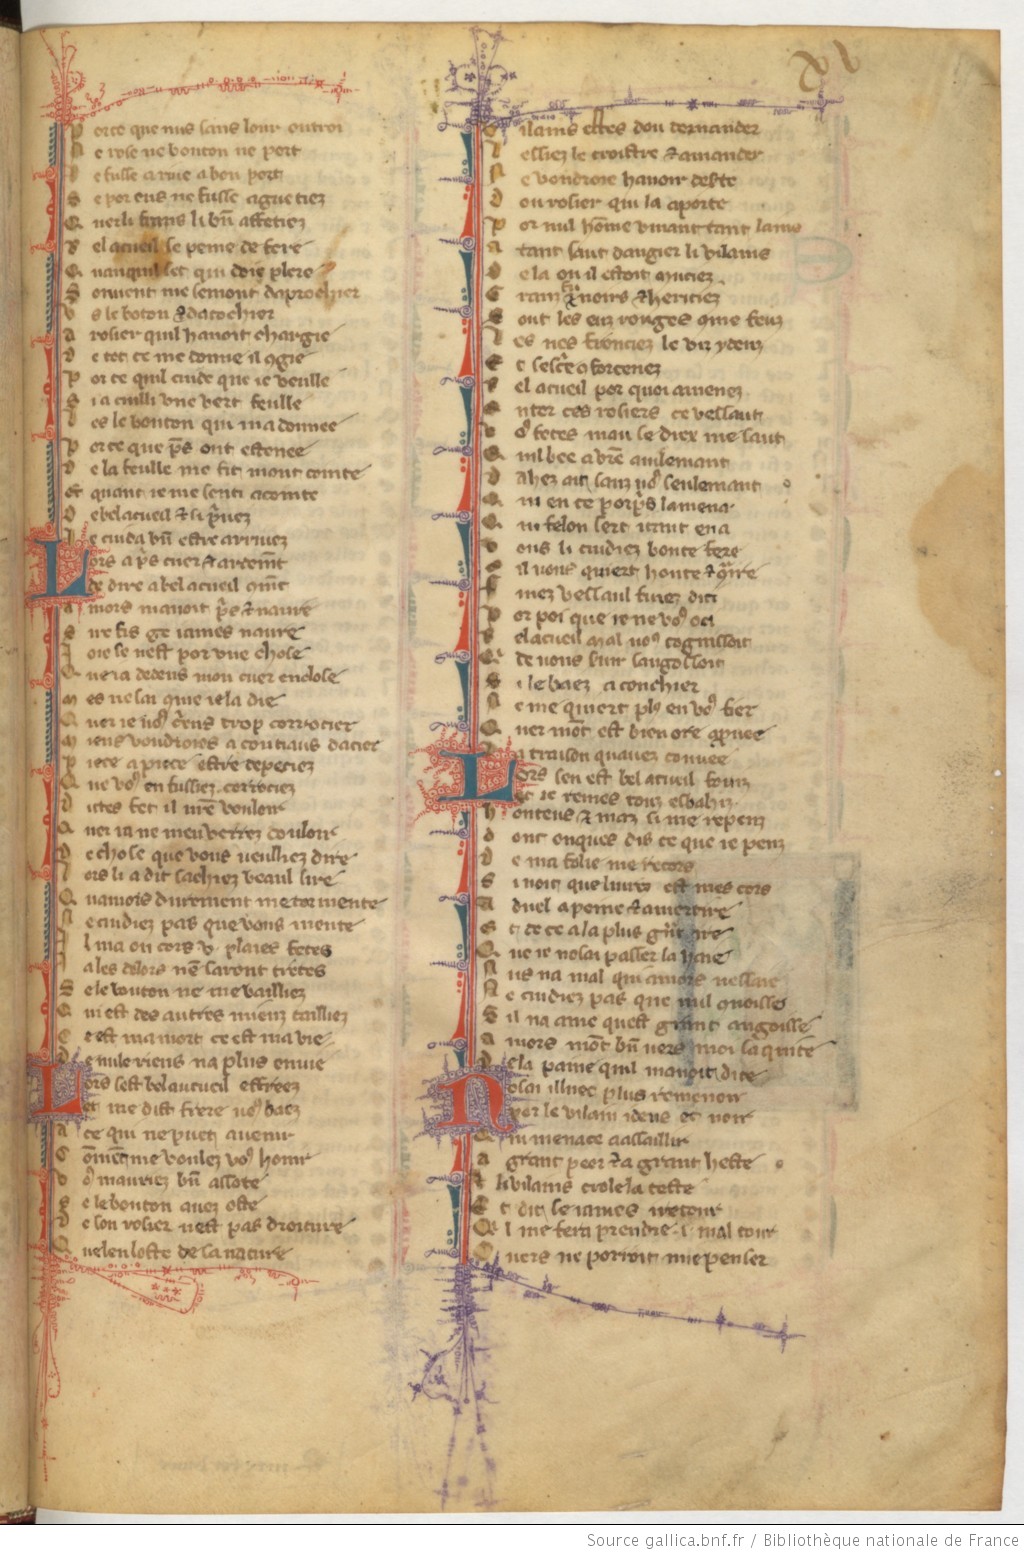 XI
P orce que nus sans lour outroi
N e rose ne bouton ne port
S e por eus ne fusse agueitiez
Q uerli frans li bñ affetiez
B el acueil se peine de fere
Q uanquil set qui doie plere
S ouuent me semont daprochier
V s le boton & datochier
A rosier quil hauoit chargie
D e tot ce me donne il ɔgie
P or ce quil cuide que ie veulle
S i a cuilli vne vert feulle
L es le bouton qui ma donnee
P or ce que p̃s ont estonee
D e la feulle me fit mont cointe
Et quant ie me senti acointe
D e belacueil & si p̃uez
I e cuida bñ estre arriuez
Lors a p̃s cuer & ardemt
de dire a bel acueil
A mors mauoit p̃s & naure
S ire fis ge iames naure
I oie se nest por vne chose
Q ue ia dedens mon cuer enclose
M es ne sai qmie ie la die
Q uer ie vos criens trop corrocier
M iens vondroies a coutiaus dacier
P iece a piece estre depeciez
Q ue vos en fussiez corrociez
D ites fet il vrẽ vouloir
Q uer ia ne me verrez douloir
D e chose que vous veulliez dire
L ors li a dit sachiez veaul sire
Q uamors durement me tormente
N e cuidiez pas que vous mente
I l ma ou cors v plaies fetes
I a les dolors nen seront tretes
S e le bouton ne me bailliez
Q ui est des autres mieuz tailliez
C e est ma mort ce est ma vie
D e nule riens na plus enuie
Lors sest bel aucueil effreez
Et me dist frere vos baez
A ce qui ne puet auenir
C õment me voulez vos honir
V os mauriez bñ assote
S e le bouton auez oste
D e son rosier nest pas droiture
Q uelen loste de sa nature
V ilains estes dou demander
L essiez le croistre & amander
N e vondroie hauoir deste
D ou rosier qui la aporte
P or nul home viuant tant laime
A tant saut dangier li vilains
D e la ou il estoit muciez
G rans fu & noirs & hericiez
S ont les euz rouges ɔme feuz
L es nes fronciez le vis ydeuz
E t sescrie ɔ forcenez
B el acueil por quoi amenez
E nter ces rosiers ce vessaut
V os fetes mau se diex me saut
Q uil bee a vrẽ auilemant
D ahez ait sanz vos seulemant
Q ui en ce porp̃s lamena
Q ui felon sert itant en a
V ous li cuidiez bonte fere
E il vous quiert honte & ɔtire
F uiez vessaul fuiez dici
P or poi que ie ne vos oci
B el acueil mal vos cognissoit
Q i de vous seruir sangoissoit
S i le baez a conchier
N e me quiert plus en vos fier
Q uer mõt est bien ore aprouee
La traison quauez couuee
Lors sen est bel acueil foiz
Et ie remes touz esbahiz
H onteus & maz si me repenz
D ont onques dis ce que ie penz
D e ma folie me recors
S i voit que liurez est mes cors
A duel a peine & a martire
E t de ce a la plus grant ire
Q ue ie nosai passer la haie
N us na mal qui amors nessaie
N e cuidiez pas que nul ɔnoisse
S il na ame quest grant angoisse
A mors mõt bñ vers moi saquite
De la paine quil mauoit dite
Nosai illuec plus remenoir
Por le vilain ideus et noir
Q ui menace a assaillir
A grant peor & a grant heste
Et li vilains crole la teste
E t dit se iames i retour
Q il me fera prendre .i. mal tour
Q uers ne porroit mie penser
Source gallica.bnf.fr / Bibliothèque nationale de France